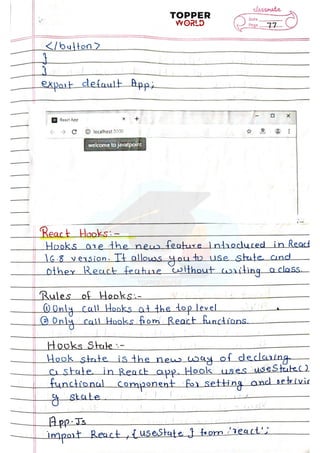 classmate
TOPPER
WORLD
Date
Page 77
</button>
}
}
export default App;
React App
localhost:3000
welcome to javatpoint
React Hooks:-
Hooks are the new feature introduced in React
16.8 version. It allows you to use state and
other React feature without writing a class.
Rules of Hooks:-
① Only call Hooks at the top level
② Only call Hooks from React functions.
Hooks State:-
Hook state is the new way of declaring
a state in React app. Hook uses useState()
functional component for setting and retrivin
g state.
App.Js
import React, {useState} from 'react';